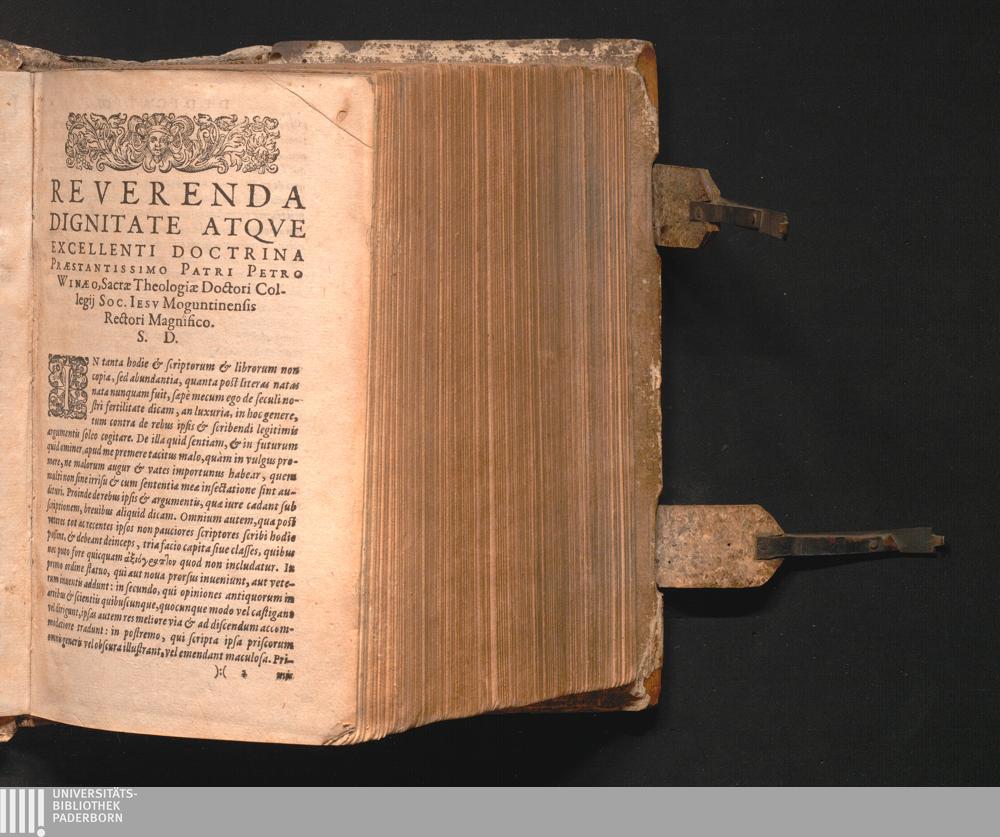 REVERENDA
DIGNITATE ATQVE
EXCELLENTI DOCTRINA
PRÆSTANTISSIMO PATRI PETRO
WINÆO, Sacræ Theologiæ Doctori Col-
legij SOC. IESV Moguntinensis
Rectori Magnifico.
S. D.
IN tanta hodie & scriptorum & librorum non
copia, sed abundantia, quanta post literas natas
nata nunquam fuit, sæpè mecum ego de seculi no-
stri fertilitate dicam, an luxuria, in hoc genere,
tum contra de rebus ipsis & scribendi legitimis
argumentis soleo cogitare. De illa quid sentiam, & in futurum
quid ominer, apud me premere tacitus malo, quàm in vulgus pro-
mere, ne malorum augur & vates importunus habear, quem
multi non sine irrisu & cum sententiæ meæ insectatione sint au-
dituri. Proinde de rebus ipsis & argumentis, quæ iure cadant sub
scriptionem, breuibus aliquid dicam. Omnium autem, quæ post
veteres tot ac recentes ipsos non pauciores scriptores scribi hodie
possint, & debeant deinceps, tria facio capita siue classes, quibus
nec puto fore quicquam ἀξιόγραπτον quod non includatur. In
primo ordine statuo, qui aut noua prorsus inueniunt, aut vete-
rum inuentis addunt: in secundo, qui opiniones antiquorum in
artibus & scientiis quibuscunque, quocunque modo vel castigant
vel dirigunt, ipsas autem res meliore via & ad discendum accom-
modatiore tradunt: in postremo, qui scripta ipsa priscorum
omnis generis vel obscura illustrant, vel emendant maculosa. Pri-
):( 2 mis
UNIVERSITÄTS-
BIBLIOTHEK
PADERBORN